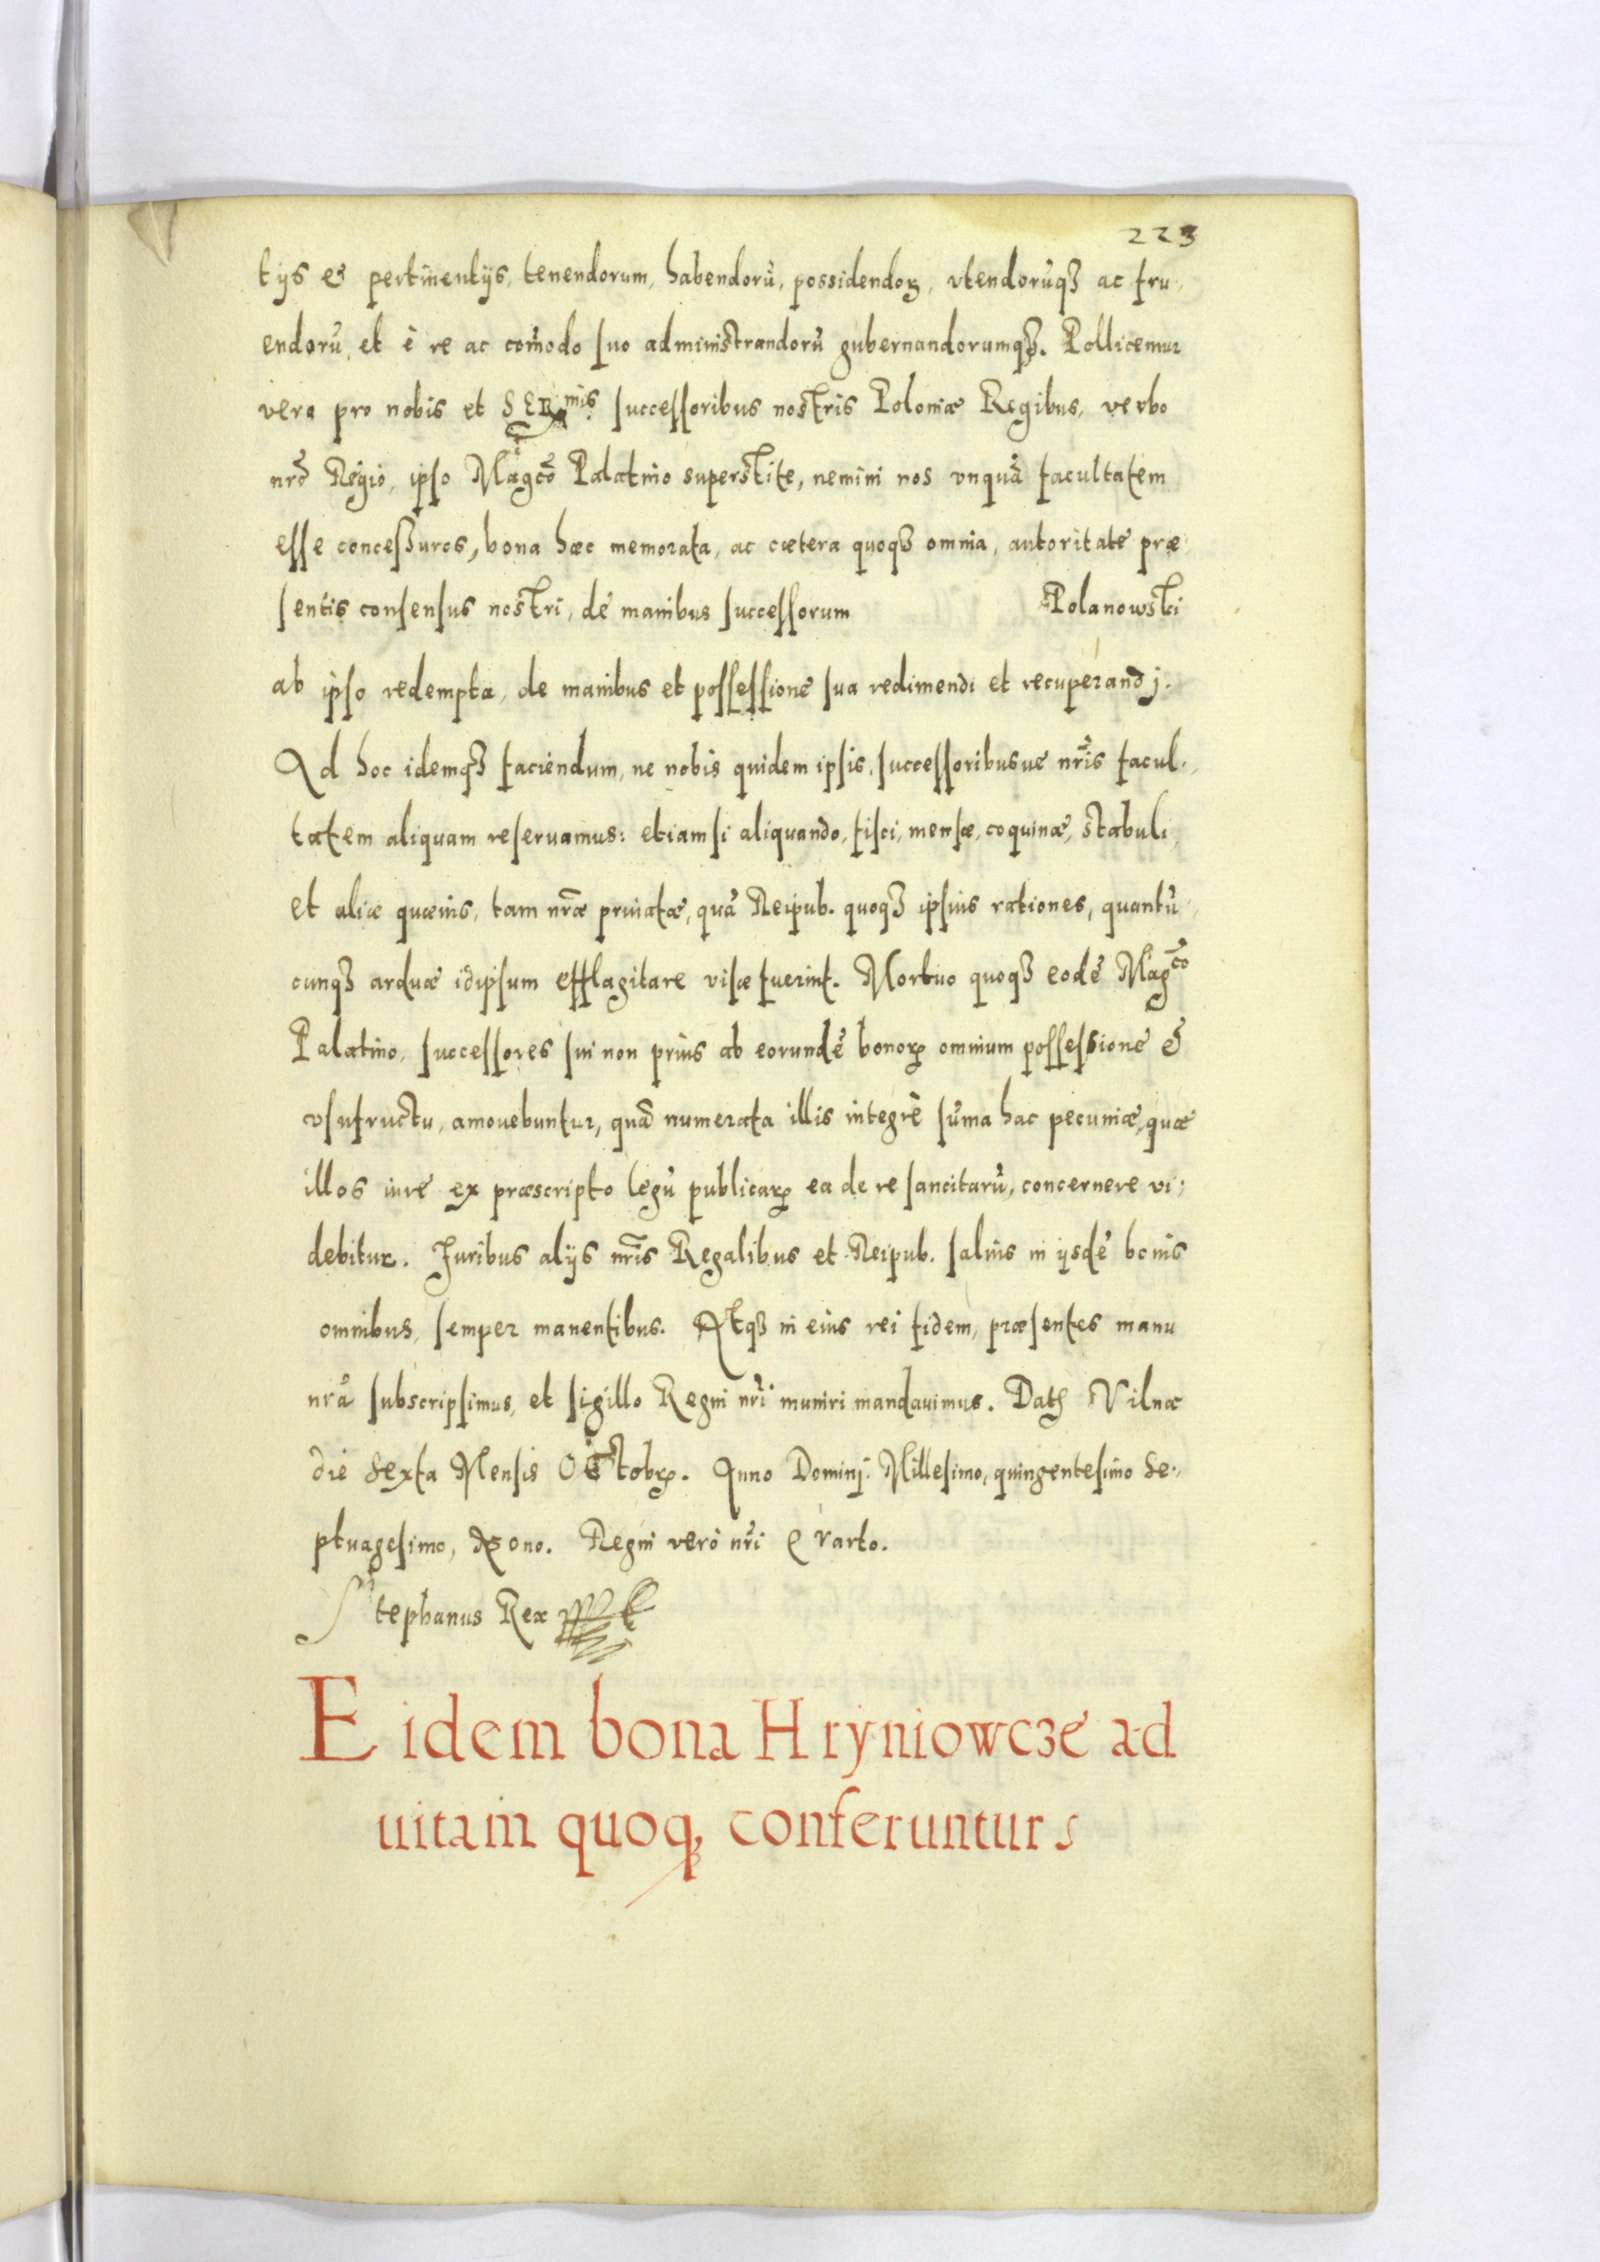 223
tijs et pertinentijs, tenendorum, habendorũ, possidendoꝝ, vtendorũqꝫ ac fru,
endorũ, et è re ac com̃odo suo administrandorũ gubernandorumqꝫ. Pollicemur
vero pro nobis et SERmis successoribus nostris Poloniæ Regibus, verbo
nrõ Regio, ipso Magco Palatino superstite, nemini nos vnquã facultatem
esse concessuros, bona hæc memorata, ac cætera quoqꝫ omnia, autoritate præ,
sentis consensus nostri, de manibus successorum Polanowski
ab ipso redempta, de manibus et possessione sua redimendi et recuperandj.
Ad hoc idemqꝫ faciendum, ne nobis quidem ipsis, successoribusue nr̃is facul,
tatem aliquam reseruamus: etiamsi aliquando, fisci, mensæ, coquinæ, stabuli,
et aliæ quæuis, tam nr̃æ priuatæ, quã Reipub. quoqꝫ ipsius rationes, quantũ,
cunqꝫ arduæ idipsum efflagitare visæ fuerint. Mortuo quoqꝫ eodẽ Magco
Palatino, successores sui non prius ab eorundẽ bonoꝝ omnium possessione &
vsufructu, amouebuntur, quã numerata illis integrè sũma hac pecuniæ, quæ
illos iure ex præscripto legũ publicaꝝ ea de re sancitarũ, concernere vi,
debitur. Juribus alijs nr̃is Regalibus et Reipub. saluis in ijsdẽ bonis
omnibus, semper manentibus. Atqꝫ in eius rei fidem, præsentes manu
nrã subscripsimus, et sigillo Regni nr̃i muniri mandauimus. Datꝭ Vilnæ
die Sexta Mensis Octobꝝ. Anno Dominj Millesimo, quingentesimo Se,
ptuagesimo, Nono. Regni verò nr̃i Qvarto.
Stephanus Rex
Eidem bona Hryniowcze ad
uitam quoqꝫ conferuntur